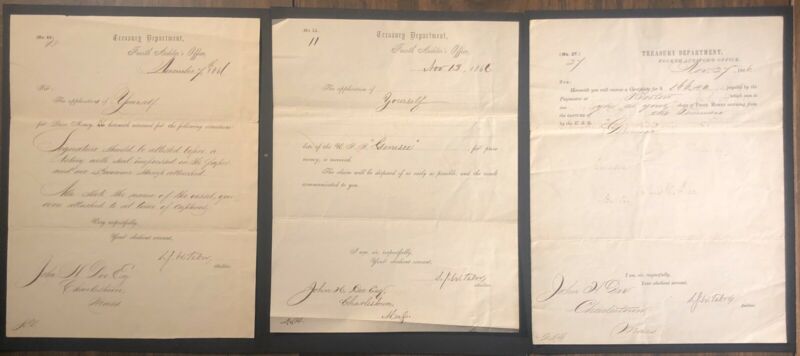 (No. 44.)
Treasury Department,
Fourth Auditor's Office,
November 7th 1866
Sir:
The application of Yourself
for Prize Money is herewith returned for the following corrections:
Signature should be attested before a
Notary with seal impressed on the paper
and one Revenue Stamp attached.
Also state the name of the vessel you
were attached to at time of capture.
Very respectfully,
Your obedient servant,
S. J. W. Tabor,
Auditor.
John H. Dee Esq
Charlestown
Mass
(No. 15.)
11
Treasury Department,
Fourth Auditor's Office,
Nov 13, 1866
The application of
Yourself
late of the U. S. S. "Genesee" for prize
money, is received.
The claim will be disposed of as early as possible, and the result
communicated to you.
I am, sir, respectfully,
Your obedient servant,
S. J. W. Tabor,
Auditor.
John H. Dee Esq.
Charlestown,
Mass.
(No. 27.)
27
TREASURY DEPARTMENT,
FOURTH AUDITOR'S OFFICE,
Nov 27, 1866
Sir:
Herewith you will receive a Certificate for $ payable by the
Paymaster at Boston which sum is
day of Prize Money accruing from
the capture of
by the U. S. S.
I am, sir, respectfully,
Your obedient servant,
S. J. W. Tabor,
Auditor.
John H Dee
Charlestown
Mass